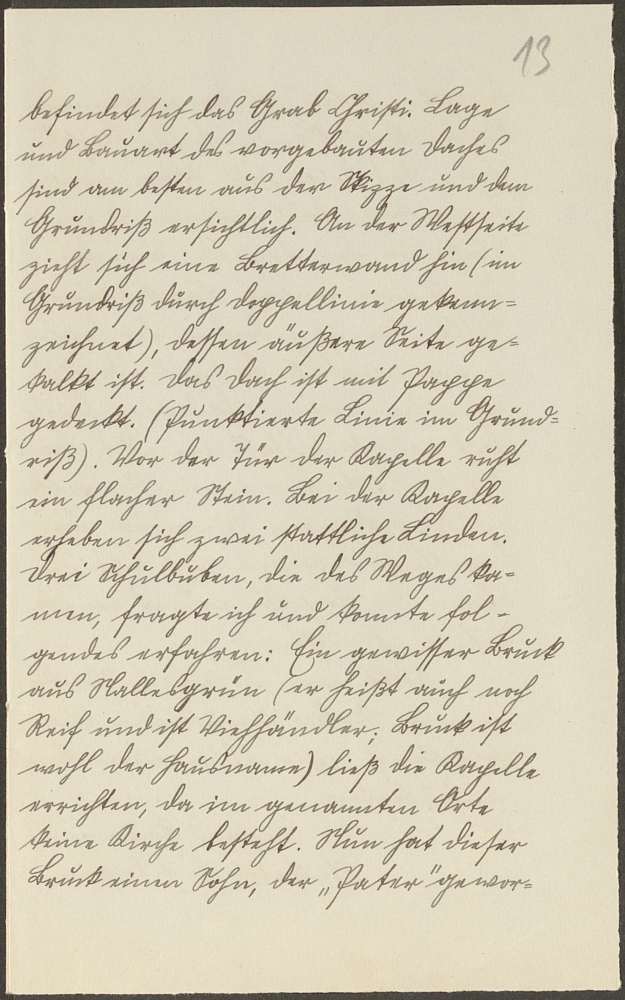 13
befindet sich das Grab Christi. Lage
und Bauart des vorgebauten Daches
sind am besten aus der Skizze und dem
Grundriß ersichtlich. An der Westseite
zieht sich eine Bretterwand hin (im
Grundriß durch Doppellinie gekenn=
zeichnet), dessen äußere Seite ge=
kalkt ist. Das Dach ist mit Pappe
gedeckt. (Punktierte Linie im Grund=
riß). Vor der Tür der Kapelle ruht
ein flacher Stein. Bei der Kapelle
erheben sich zwei stattliche Linden.
Drei Schulbuben, die des Weges ka-
men, fragte ich und konnte fol-
gendes erfahren: Ein gewisser Bruck
aus Nallesgrün (er heißt auch noch
Reif und ist Viehhändler; Bruck ist
wohl der Hausname) ließ die Kapelle
errichten, da im genannten Orte
keine Kirche besteht. Nun hat dieser
Bruck einen Sohn, der „Pater" gewor=